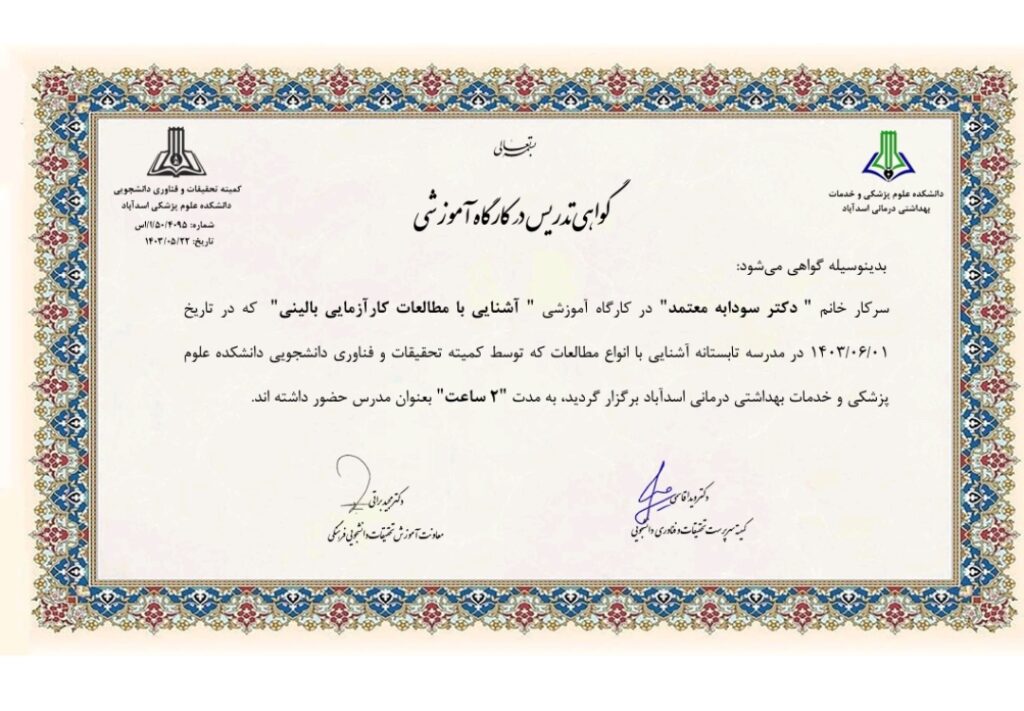 بسمه تعالی
دانشکده علوم پزشکی و خدمات
بهداشتی درمانی اسدآباد
کمیته تحقیقات و فناوری دانشجویی
دانشکده علوم پزشکی اسدآباد
شماره: ۱/۵۰/۴۰۹۵/اس
تاریخ: ۱۴۰۳/۰۵/۲۲
گواهی تدریس در کارگاه آموزشی
بدینوسیله گواهی می‌شود:
سرکار خانم " دکتر سودابه معتمد" در کارگاه آموزشی " آشنایی با مطالعات کارآزمایی بالینی" که در تاریخ
۱۴۰۳/۰۶/۰۱ در مدرسه تابستانه آشنایی با انواع مطالعات که توسط کمیته تحقیقات و فناوری دانشجویی دانشکده علوم
پزشکی و خدمات بهداشتی درمانی اسدآباد برگزار گردید، به مدت "۲ ساعت" بعنوان مدرس حضور داشته اند.
دکتر ویدا قاسمی
کمیته سرپرست تحقیقات و فناوری دانشجویی
دکتر مجید براتی
معاونت آموزش تحقیقات دانشجویی فرهنگی